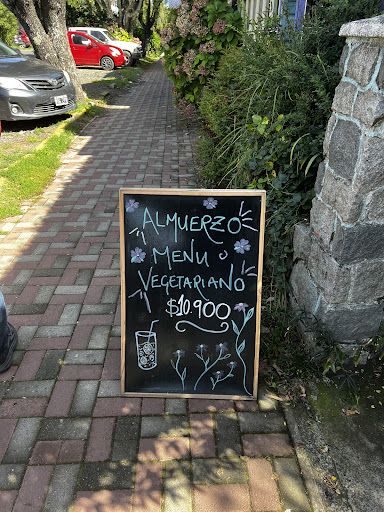 ALMUERZO
MENU
VEGETARIANO
$10.900